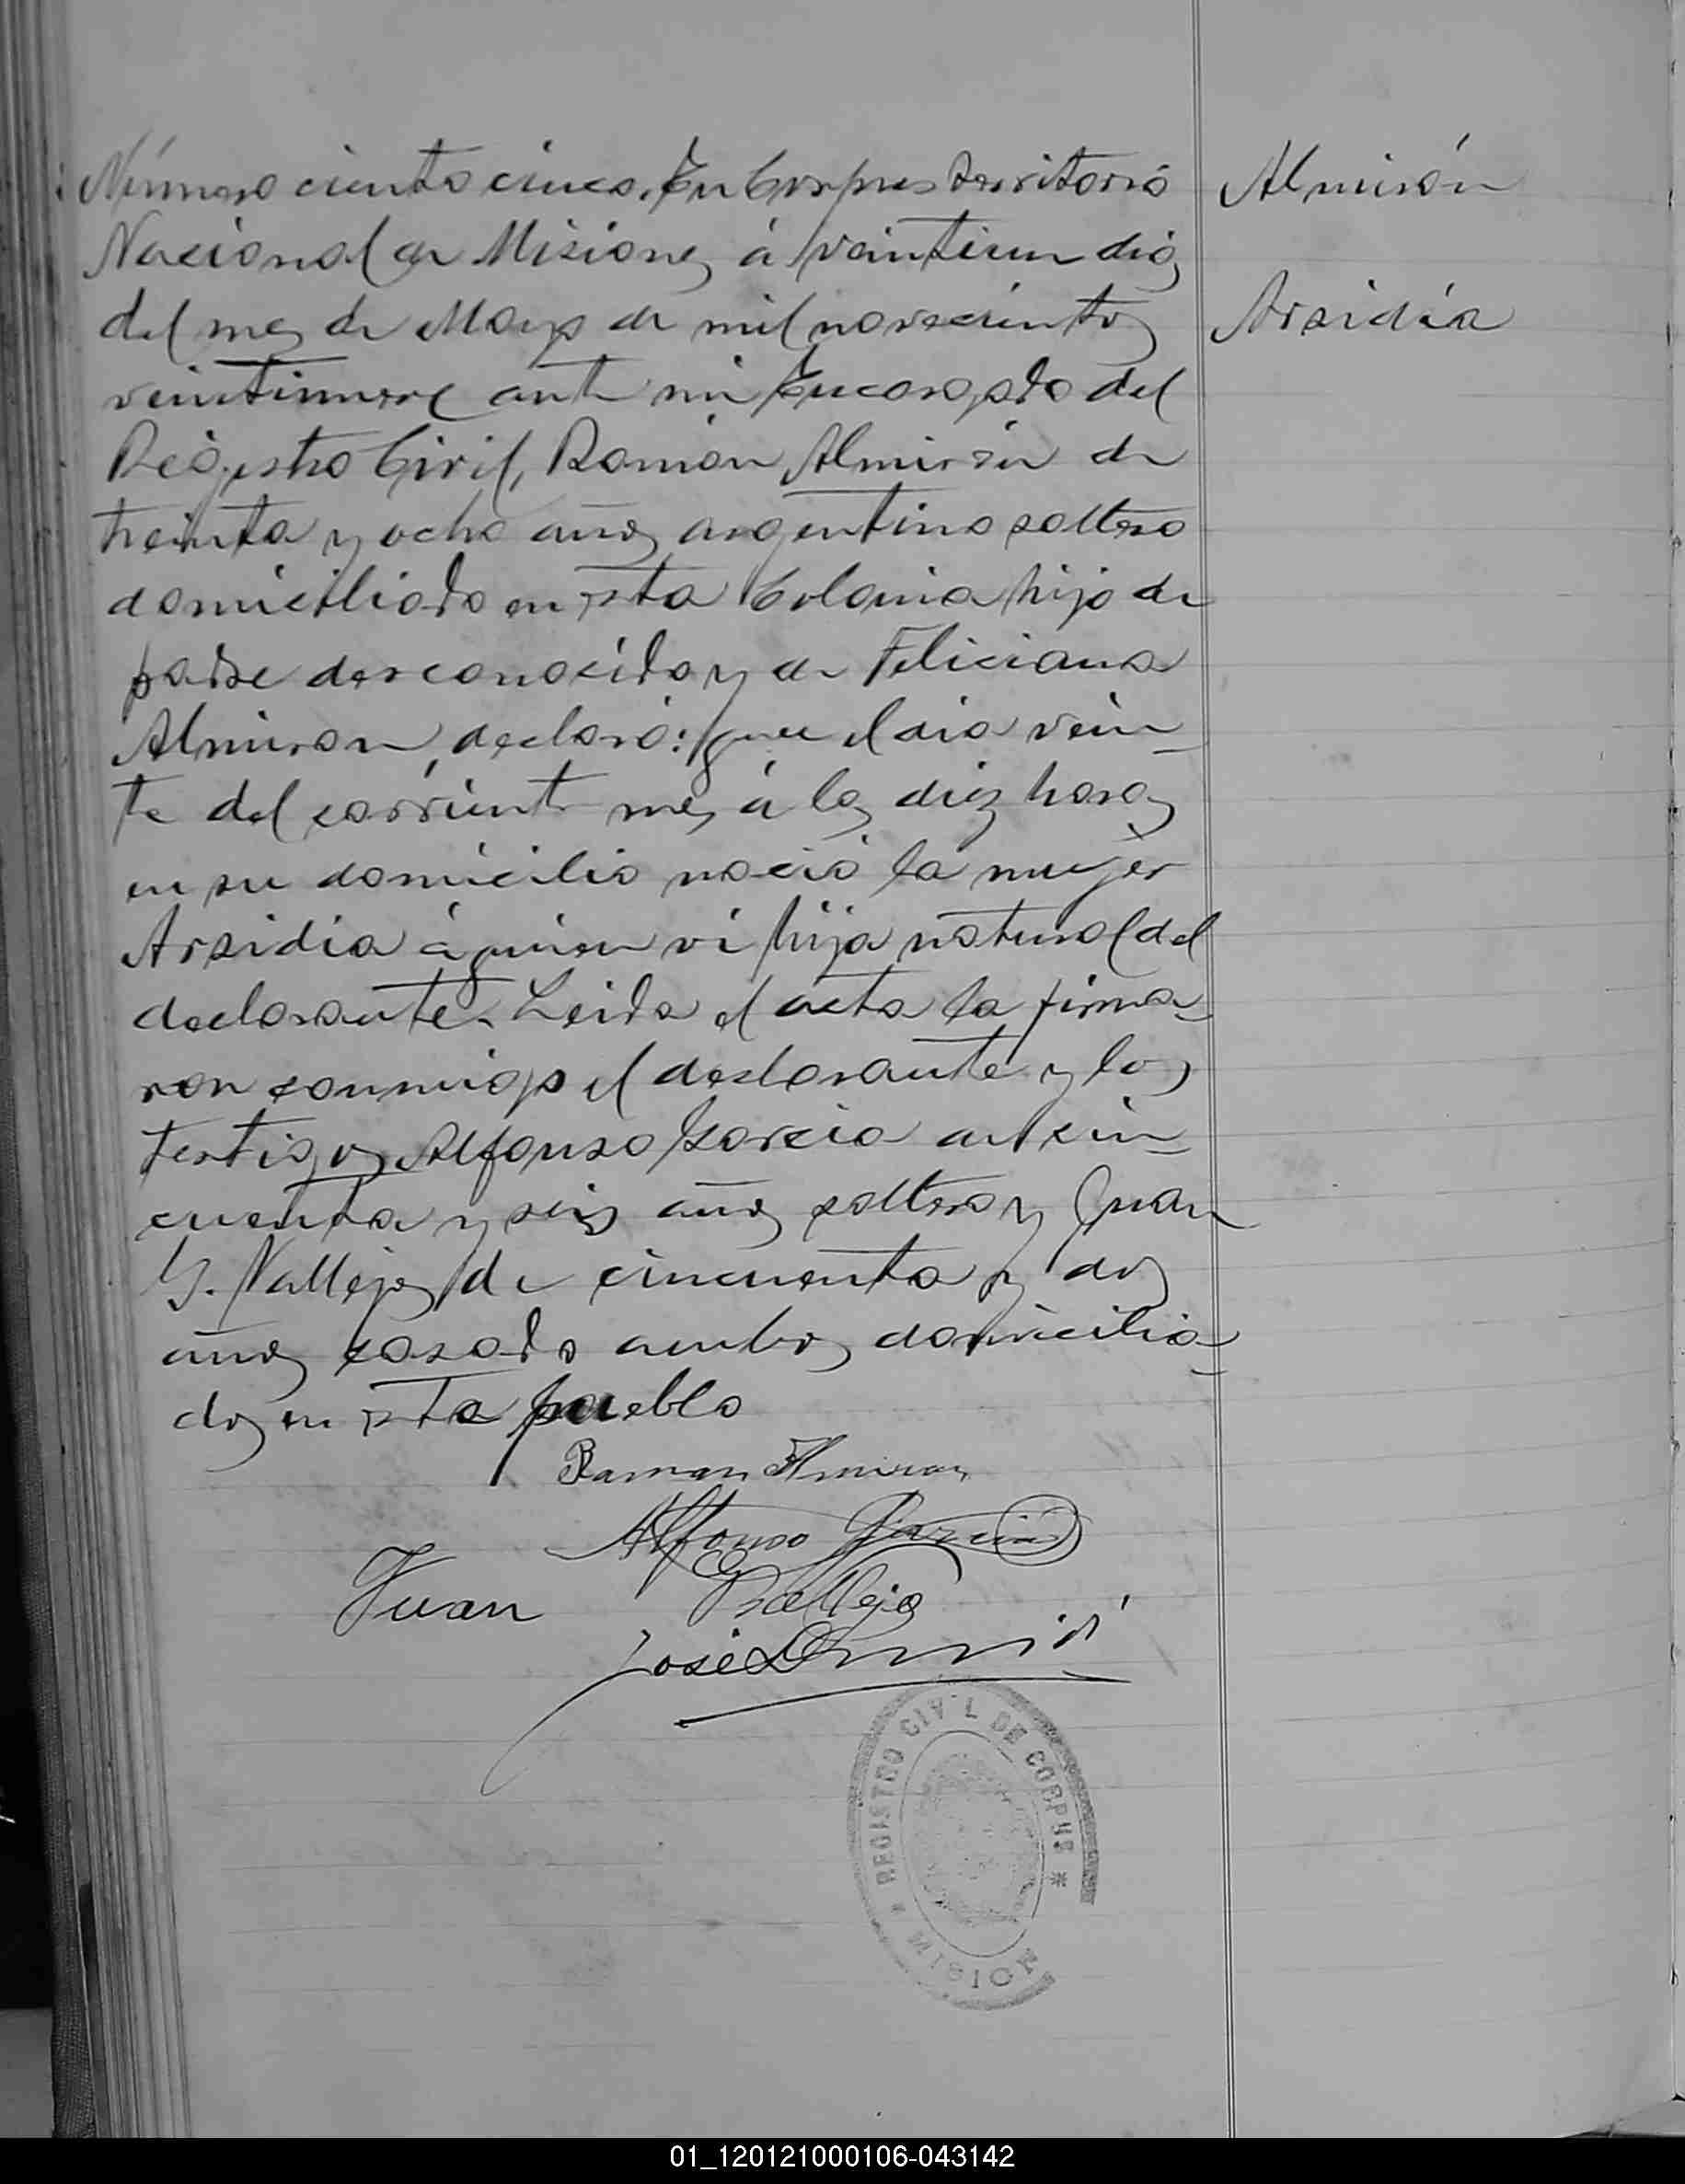 Número ciento cinco. En Corpus territorio
Nacional de Misiones á veintiun dias
del mes de Mayo de mil novecientos
veintinueve ante mi Encargado del
Registro Civil, Ramón Almirón de
treinta y ocho años argentino soltero
domiciliado en esta Colonia hijo de
padre desconocido y de Feliciana
Almiron, declaró: que el dia vein
te del corriente mes á las diez horas
en su domicilio nació la mujer
Arsidia á quien vi hija natural del
declarante. Leida el acta la firma
ron conmigo el declarante y los
testigos Alfonso Garcia de cin
cuenta y seis años soltero y Juan
G. Vallejos de cincuenta y dos
años casado ambos domicilia
dos en este pueblo
Almirón
Arsidia
Ramon Almiron
Alfonso Garcia
Juan G Vallejo
José
REGISTRO CIVIL DE CORPUS
MISION
01_120121000106-043142